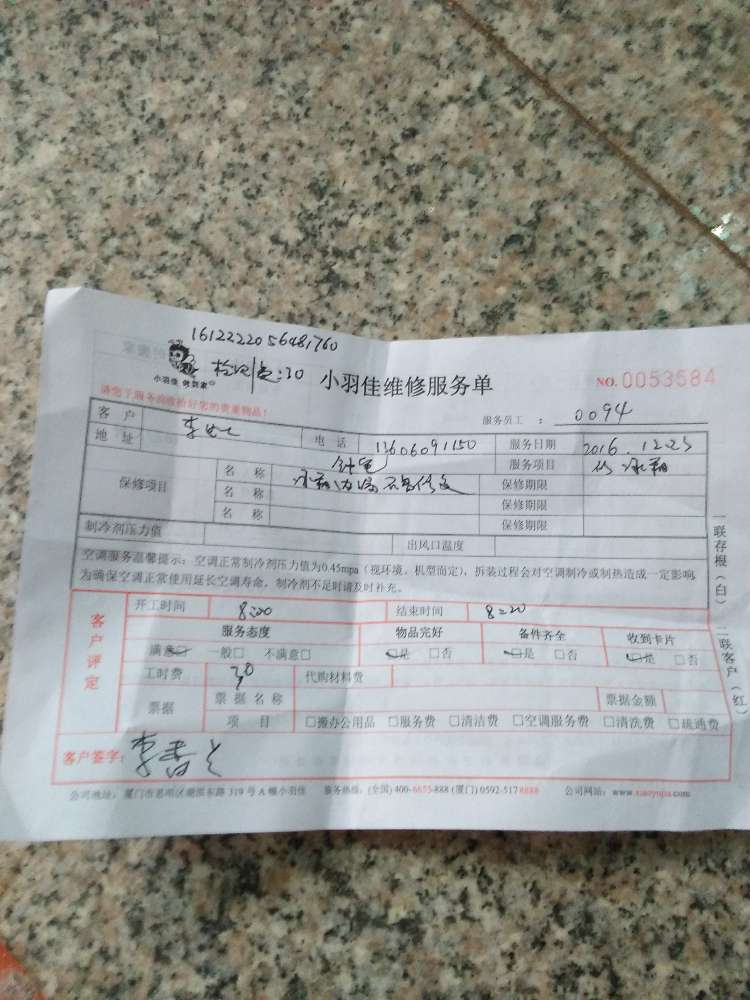 16122220 56481760
检测费:30
小羽佳 做到家
小羽佳维修服务单
NO. 0053584
服务员工 : 0094
客 户 李女士 电 话 13606091150 服务日期 2016.12.23
地 址 服务项目
保修项目 名 称 保修期限
名 称 保修期限
名 称 保修期限
制冷剂压力值 出风口温度
空调服务温馨提示:空调正常制冷剂压力值为0.45mpa(视环境、机型而定),拆装过程会对空调制冷或制热造成一定影响,
为确保空调正常使用延长空调寿命,制冷剂不足时请及时补充。
客户评定
开工时间 8:00 结束时间 8:20
服务态度 物品完好 备件齐全 收到卡片
满意□ 一般□ 不满意□ □是 □否 □是 □否 □是 □否
工时费 30 代购材料费
票据 票据名称 票据金额
项 目 □搬办公用品 □服务费 □清洁费 □空调服务费 □清洗费 □疏通费
客户签字: 李
公司地址:厦门市思明区湖滨东路 319 号 A 幢小羽佳 服务热线:(全国) 400-6675-888 (厦门) 0592-5178888 公司网站:www.xiaoyujia.com
一联存根(白) 二联客户(红)